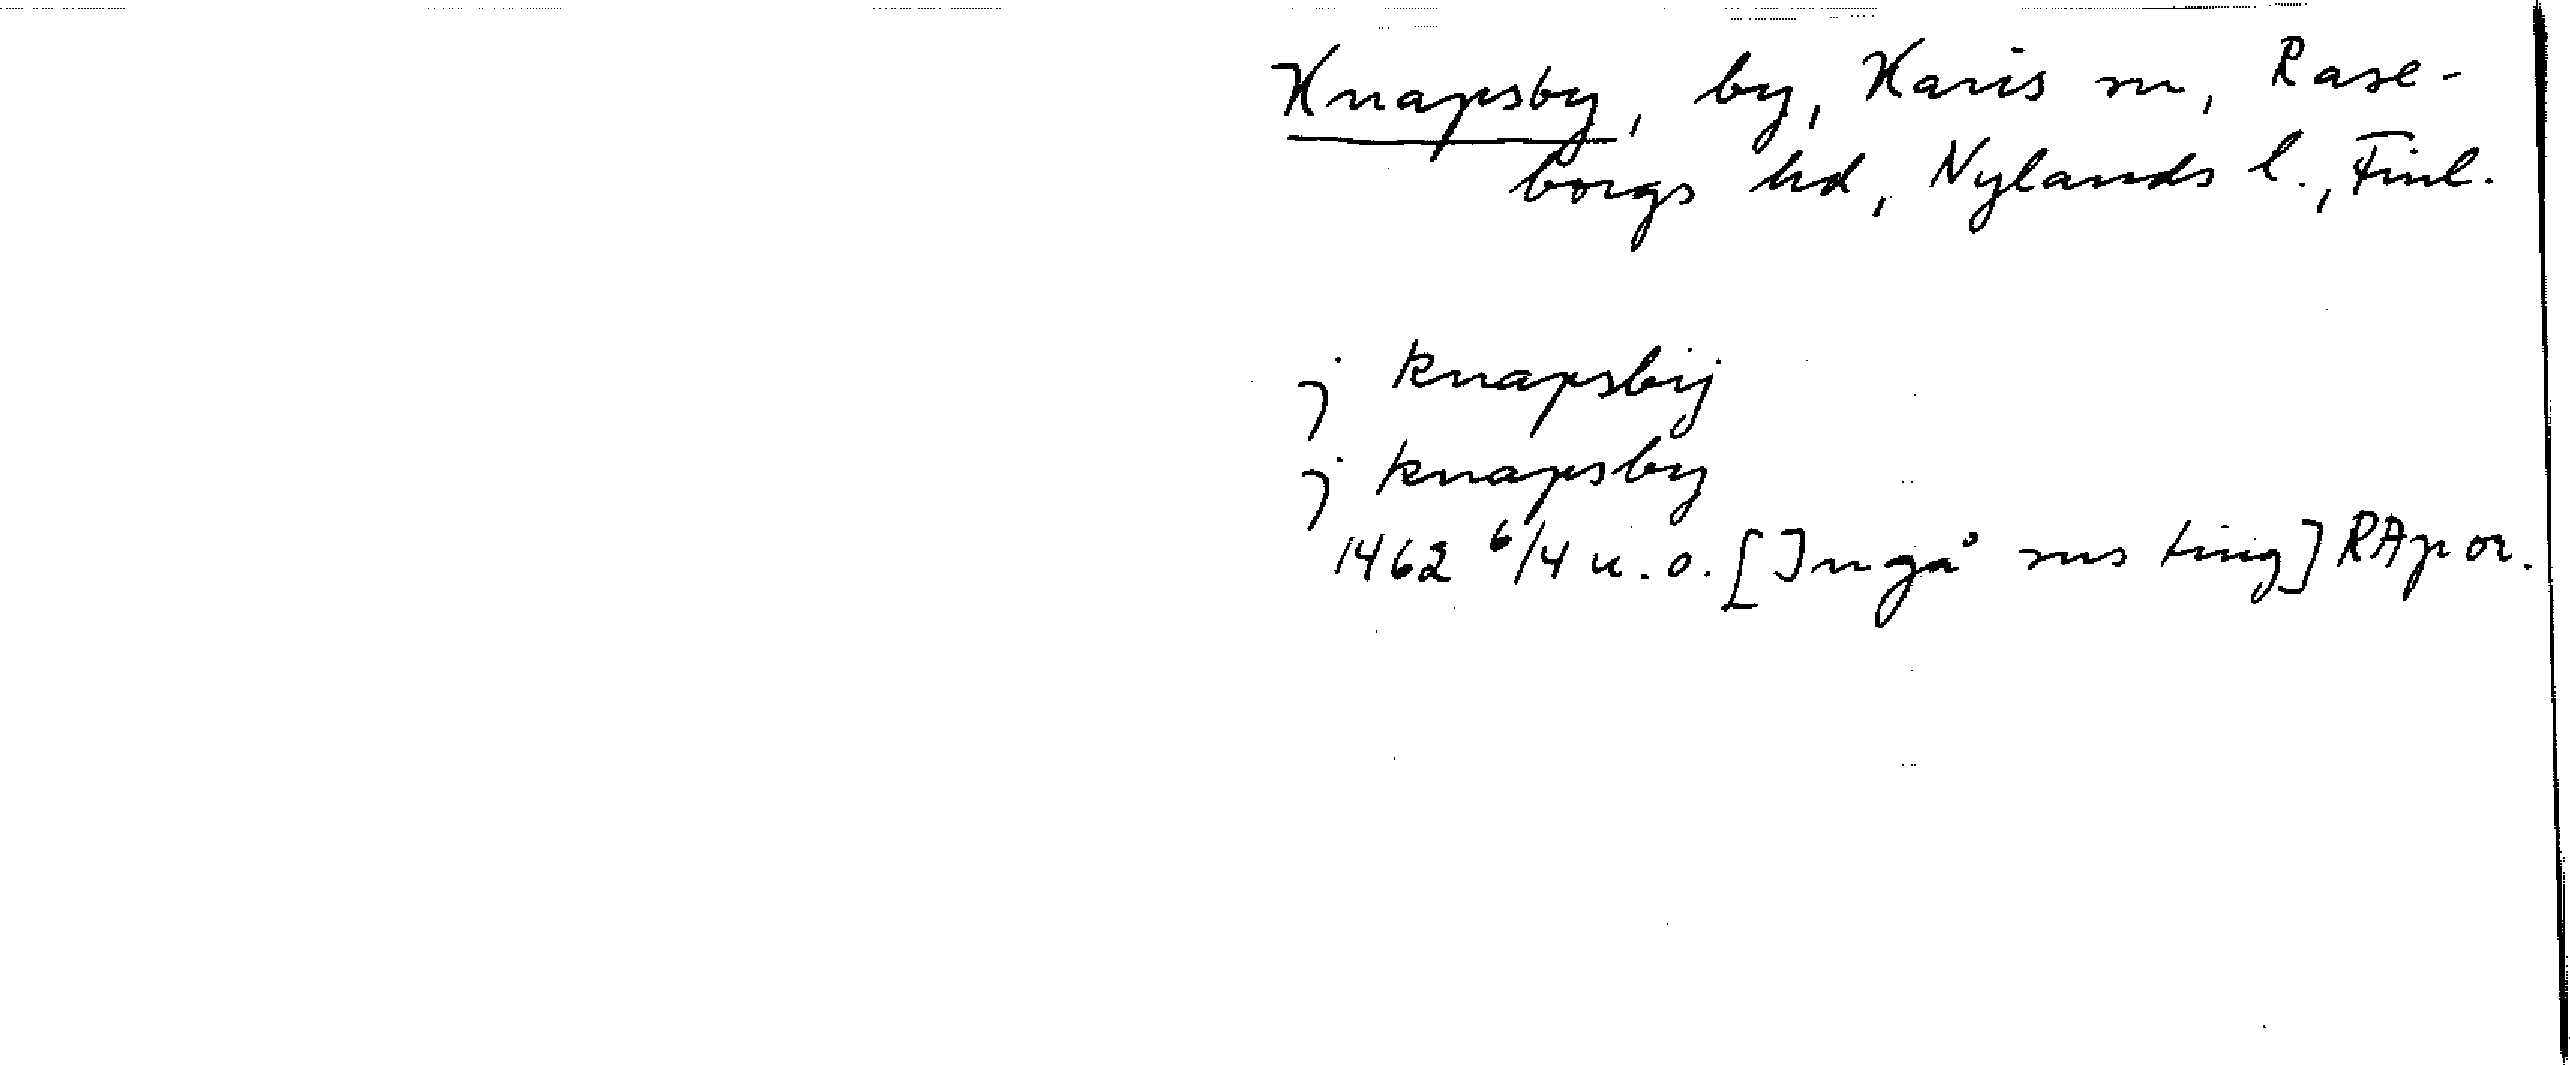 Knapsby, by, Karis sn, Rase-
borgs hd, Nylands l., Finl.
j knapsbij
j knapsby
1462 6/4 u.o. [Ingå sns ting] RApor.